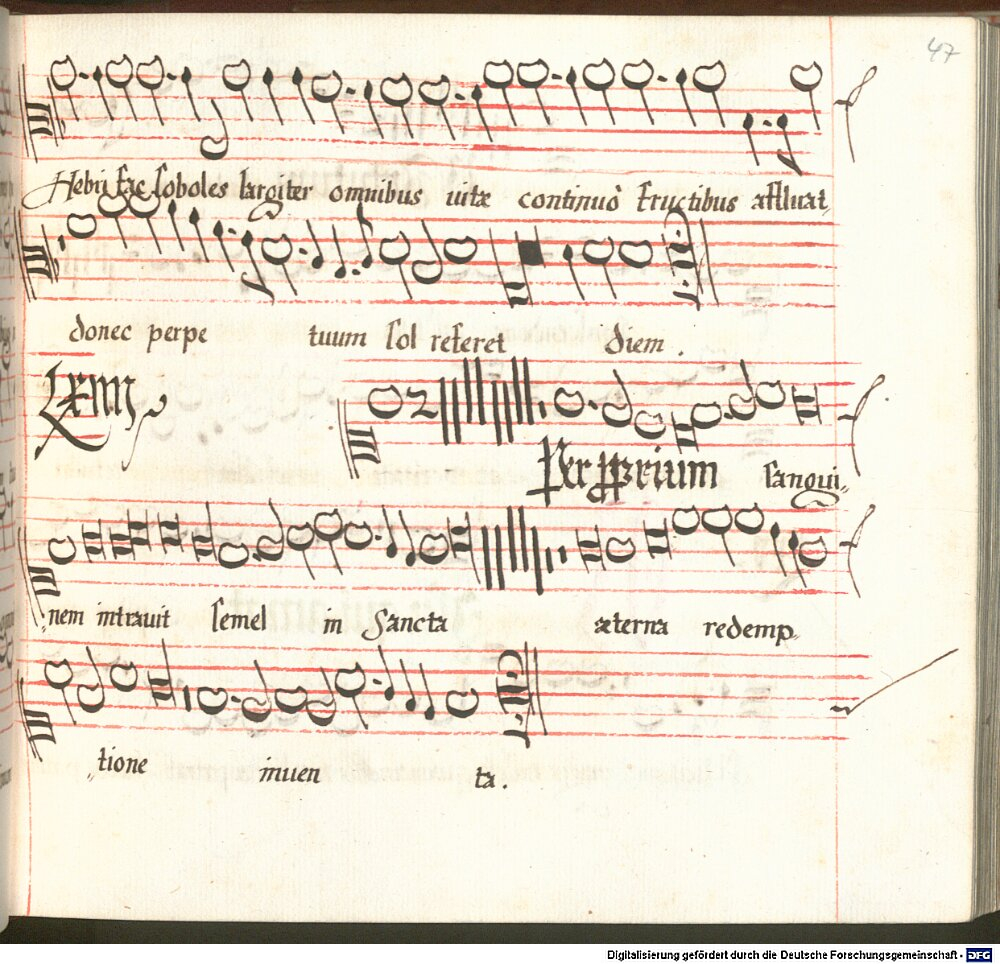 47
Hebri fac soboles largiter omnibus uitæ continuò fructibus affluat,
donec perpe tuum sol referet diem.
LXIIII
Per pprium sangui-
nem intrauit semel in Sancta æterna redemp-
tione inuen ta.
Digitalisierung gefördert durch die Deutsche Forschungsgemeinschaft - DFG